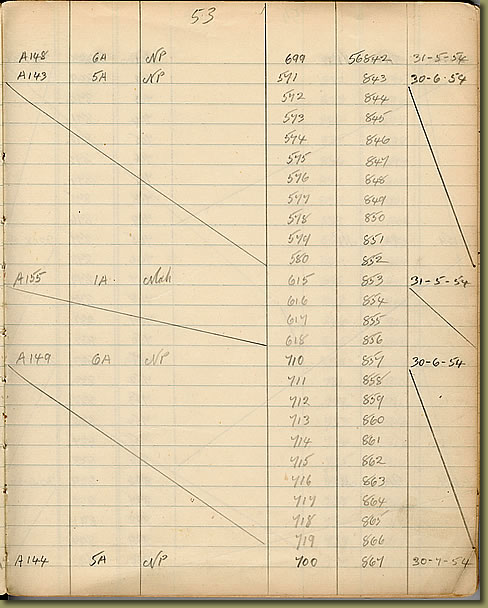 53
A148 6A NP 699 56842 31-5-54
A143 5A NP 571 843 30-6-54
572 844
573 845
574 846
575 847
576 848
577 849
578 850
579 851
580 852
A155 1A 615 853 31-5-54
616 854
617 855
618 856
A149 6A NP 710 857 30-6-54
711 858
712 859
713 860
714 861
715 862
716 863
717 864
718 865
719 866
A144 5A NP 700 867 30-7-54